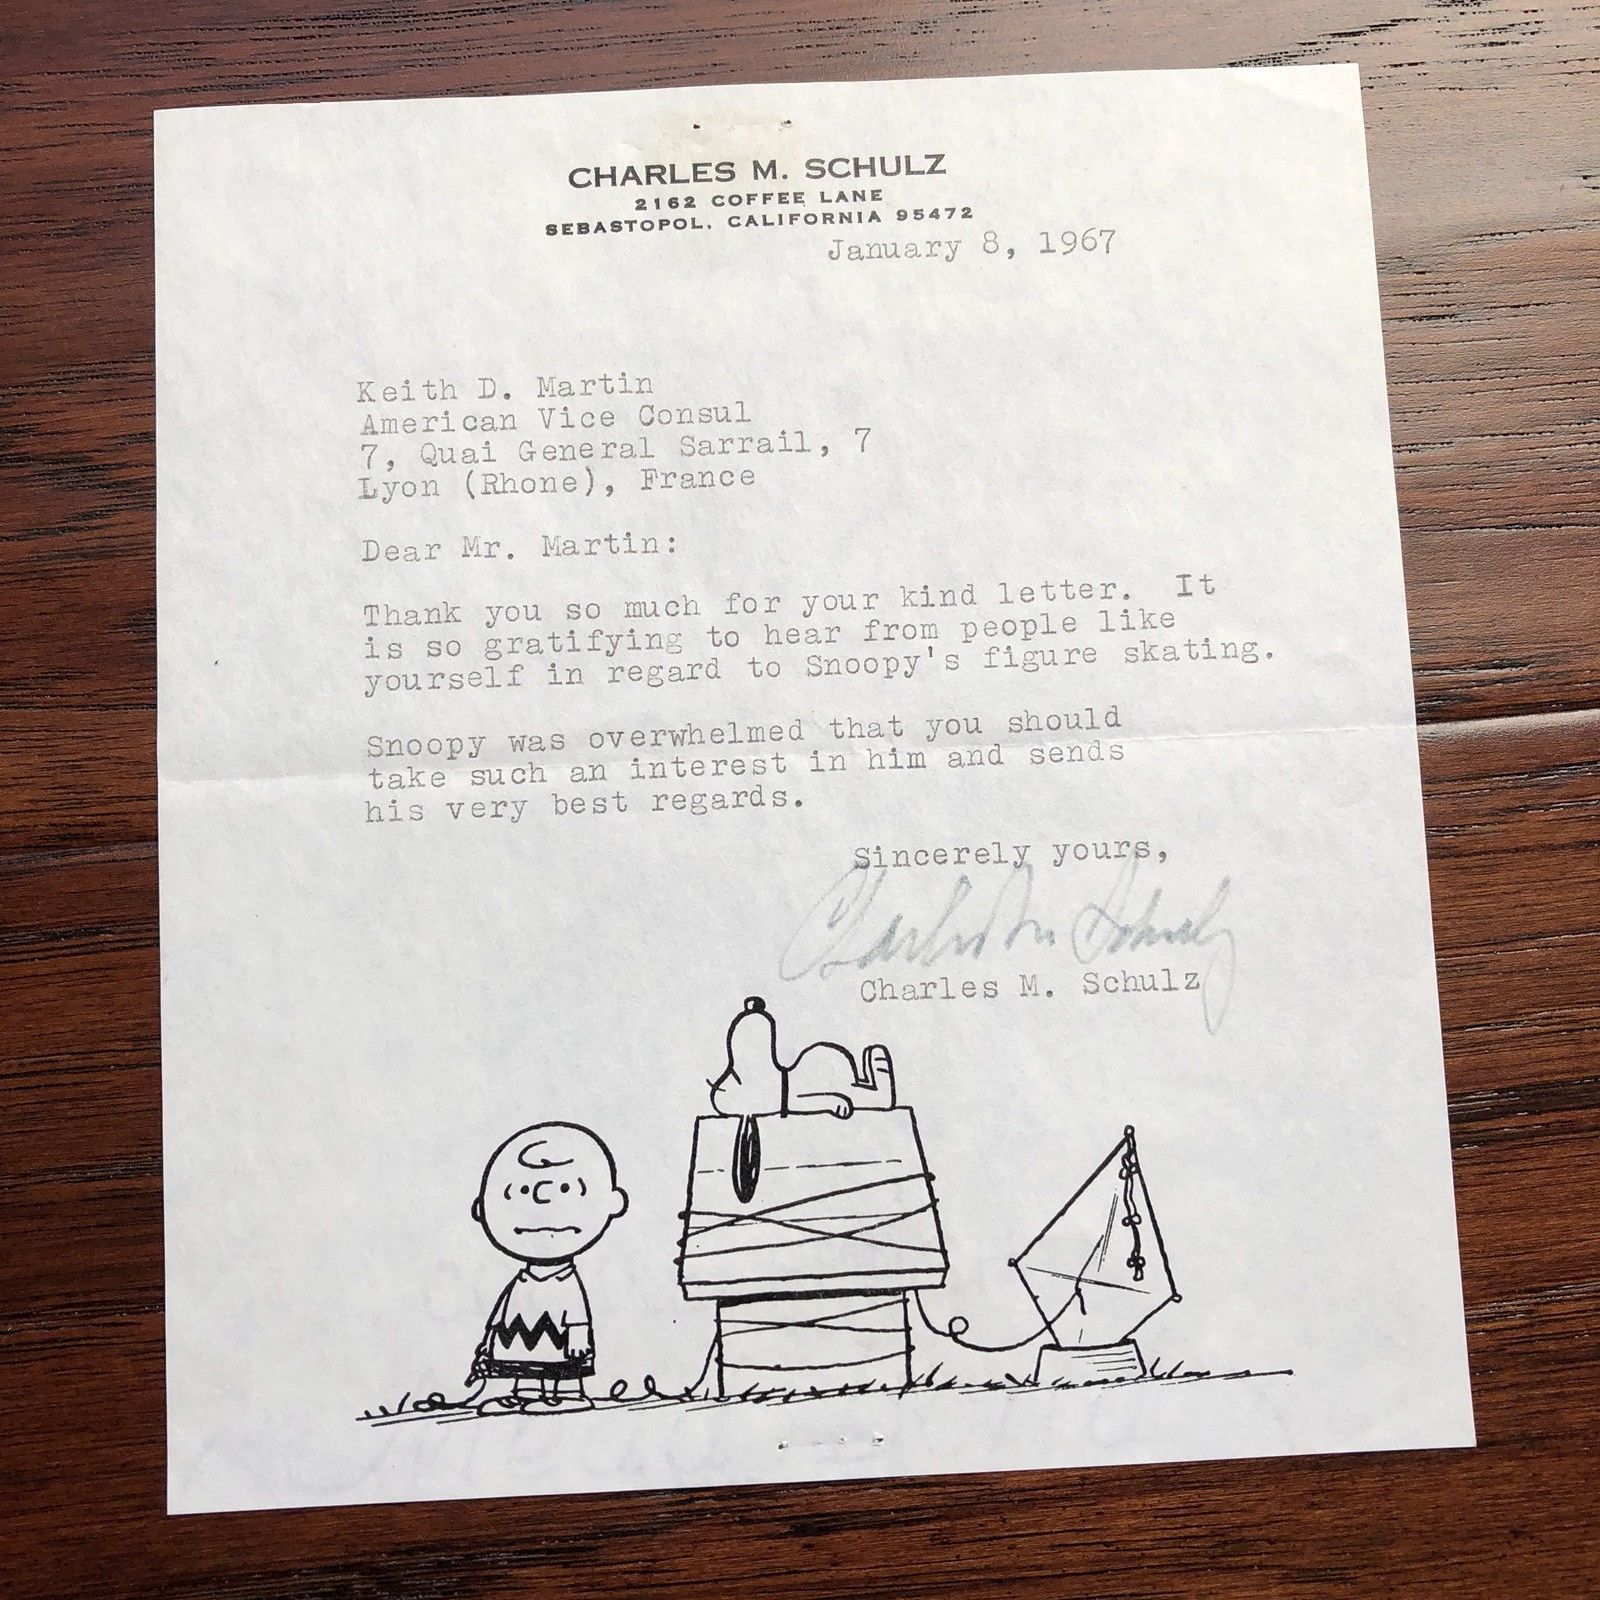 CHARLES M. SCHULZ
2162 COFFEE LANE
SEBASTOPOL, CALIFORNIA 95472
January 8, 1967
Keith D. Martin
American Vice Consul
7, Quai General Sarrail, 7
Lyon (Rhone), France
Dear Mr. Martin:
Thank you so much for your kind letter. It
is so gratifying to hear from people like
yourself in regard to Snoopy's figure skating.
Snoopy was overwhelmed that you should
take such an interest in him and sends
his very best regards.
Sincerely yours,
Charles M. Schulz
Charles M. Schulz